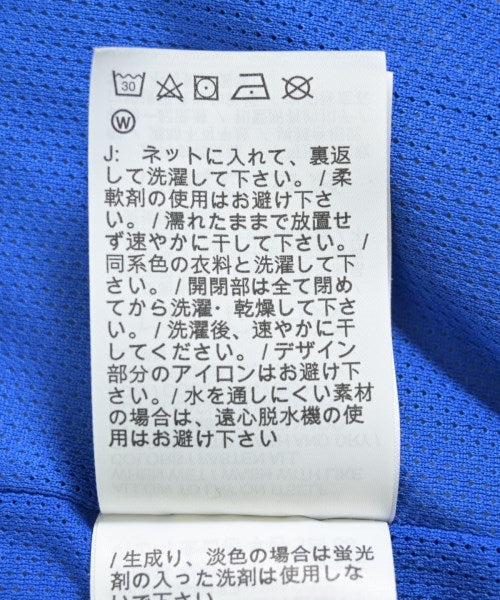 30
W
J: ネットに入れて、裏返
して洗濯して下さい。/ 柔
軟剤の使用はお避け下さ
い。/ 濡れたままで放置せ
ず速やかに干して下さい。/
同系色の衣料と洗濯して下
さい。/ 開閉部は全て閉め
てから洗濯・乾燥して下さ
い。/ 洗濯後、速やかに干
してください。/ デザイン
部分のアイロンはお避け下
さい。/ 水を通しにくい素材
の場合は、遠心脱水機の使
用はお避け下さい
/ 生成り、淡色の場合は蛍光
剤の入った洗剤は使用しな
いで下さい